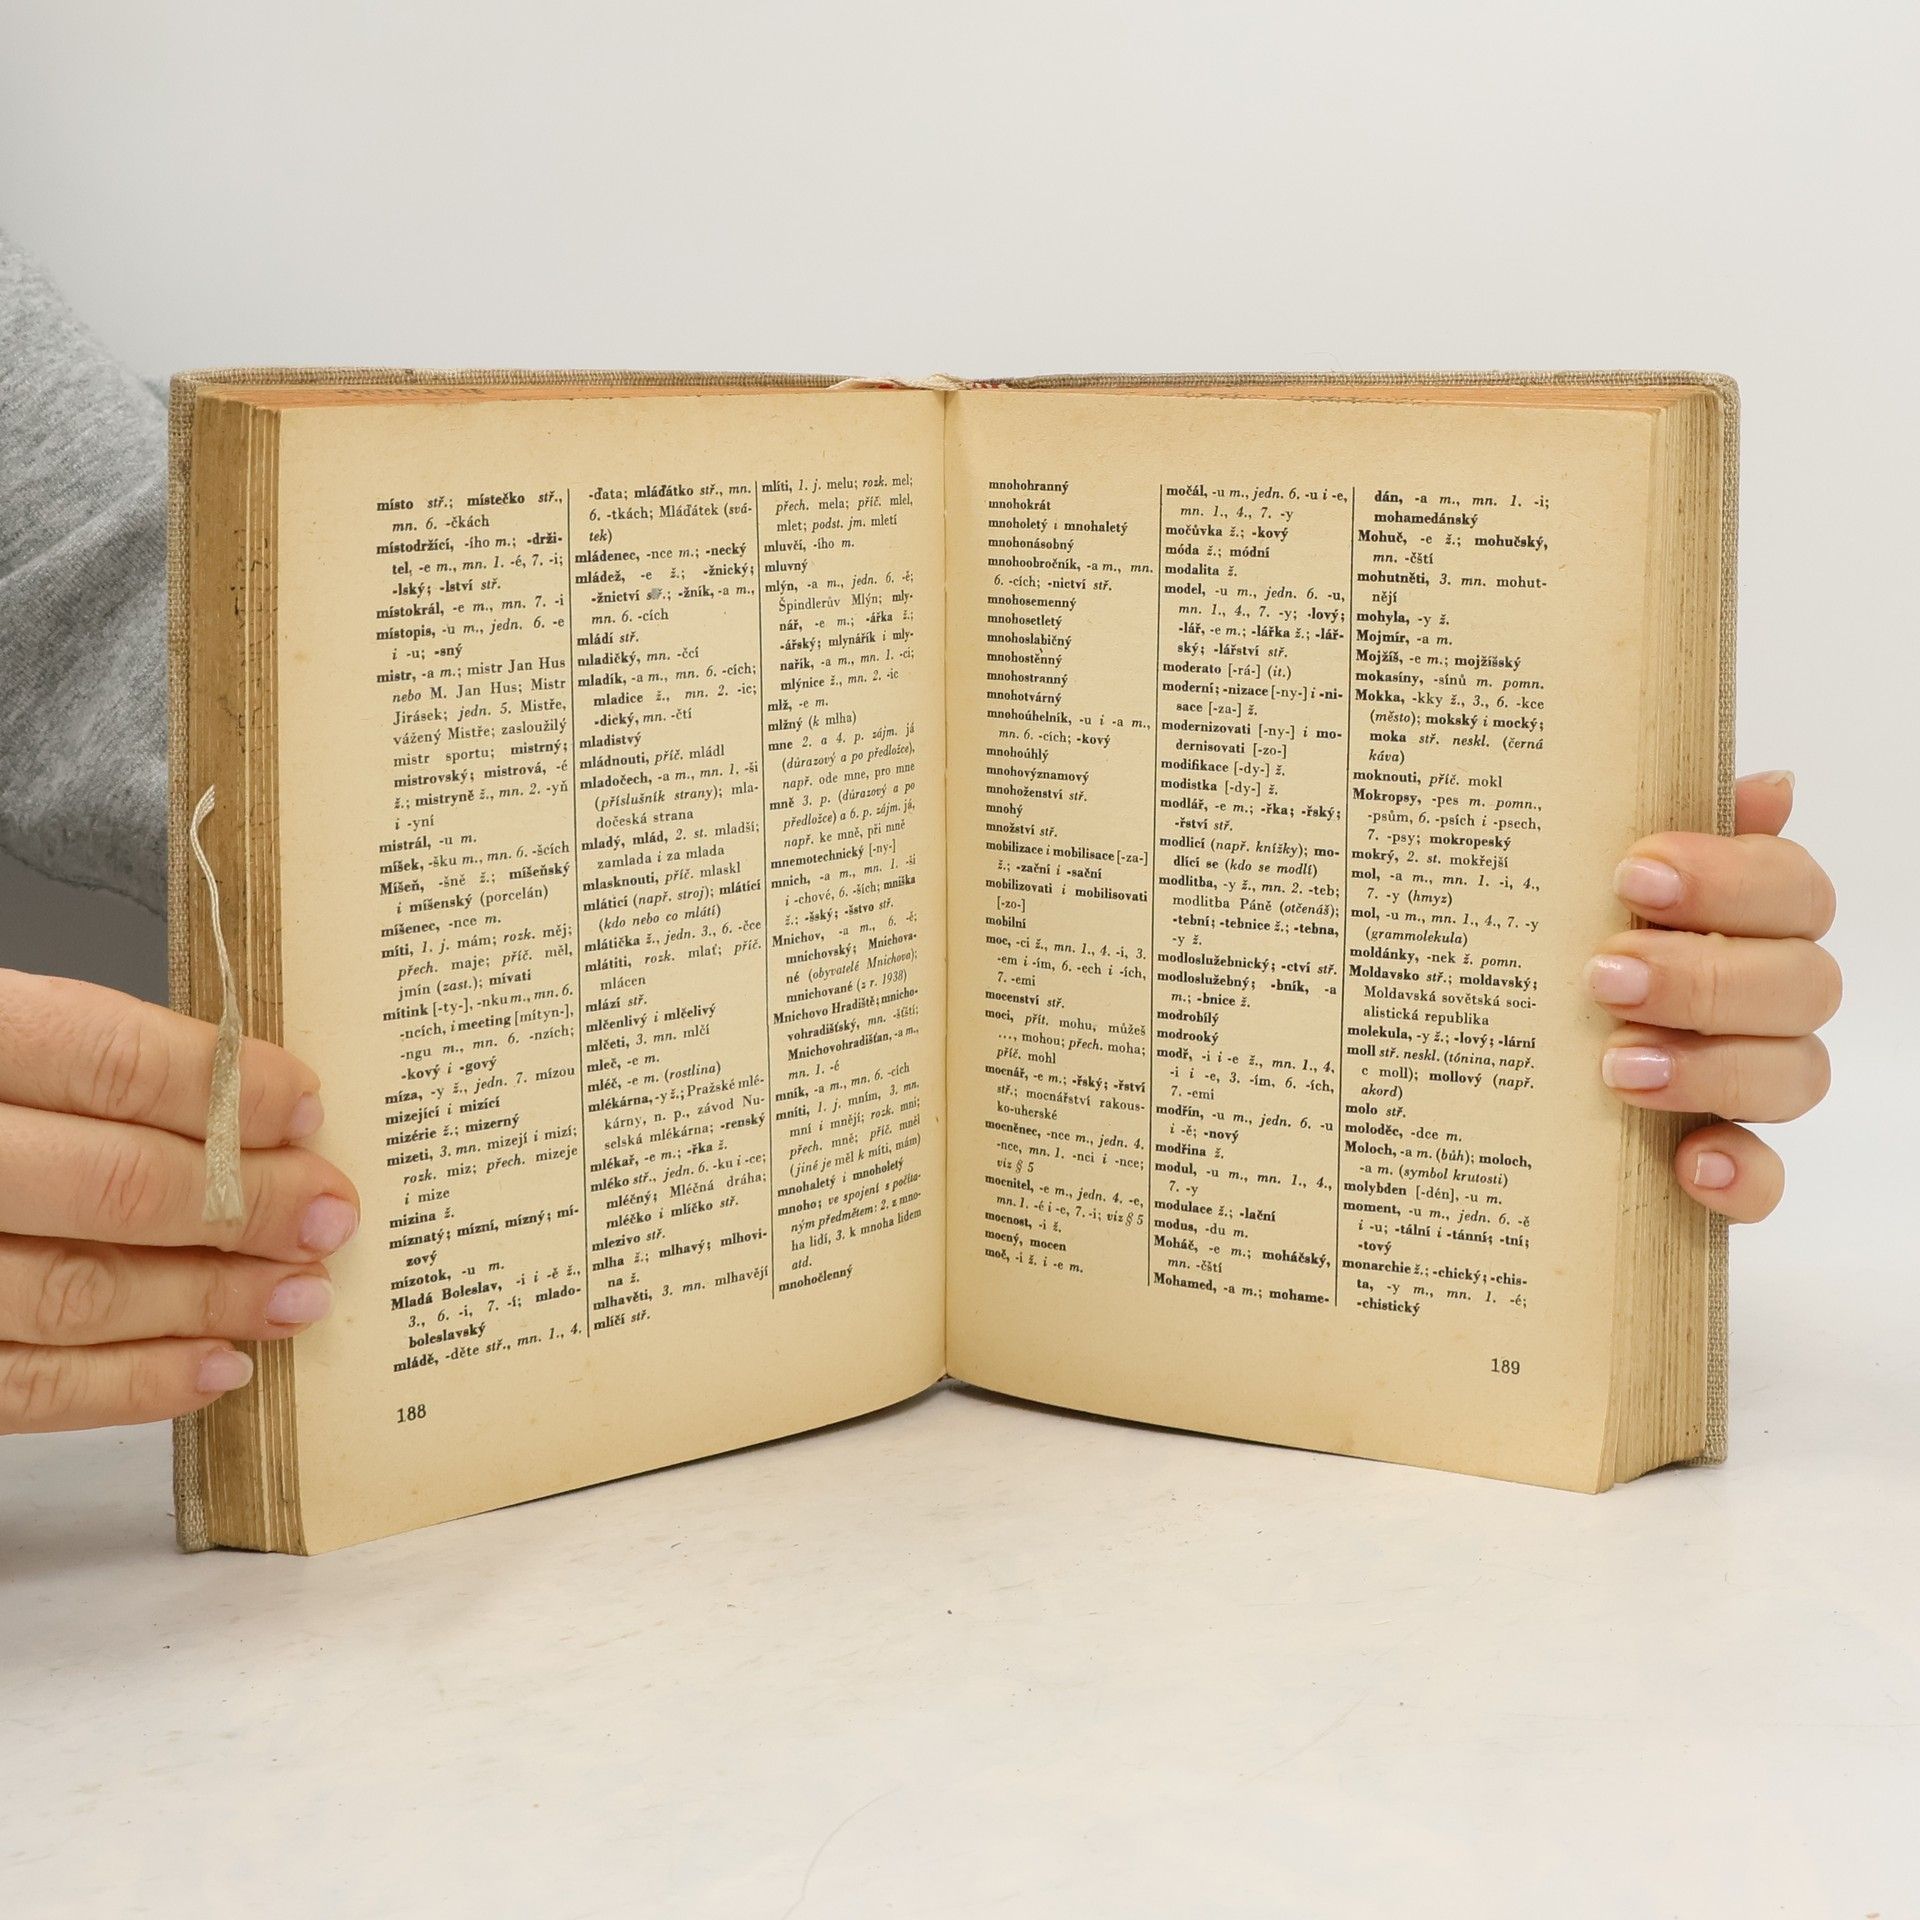 místo stř.; místečko stř.,
mn. 6. -čkách
místodržící, -ího m.; -drži-
tel, -e m., mn. 1. -é, 7. -i;
-lský; -lství stř.
místokrál, -e m., mn. 7. -i
místopis, -u m., jedn. 6. -e
i -u; -sný
mistr, -a m.; mistr Jan Hus
nebo M. Jan Hus; Mistr
Jirásek; jedn. 5. Mistře,
vážený Mistře; zasloužilý
mistr sportu; mistrný;
mistrovský; mistrová, -é
ž.; mistryně ž., mn. 2. -yň
i -yní
mistrál, -u m.
míšek, -šku m., mn. 6. -šcích
Míšeň, -šně ž.; míšeňský
i míšenský (porcelán)
míšenec, -nce m.
míti, 1. j. mám; rozk. měj;
přech. maje; příč. měl,
jmín (zast.); mívati
mítink [-ty-], -nku m., mn. 6.
-ncích, i meeting [mítyn-],
-ngu m., mn. 6. -nzích;
-kový i -gový
míza, -y ž., jedn. 7. mízou
mizející i mizící
mizérie ž.; mizerný
mizeti, 3. mn. mizejí i mizí;
rozk. miz; přech. mizeje
i mize
mizina ž.
míznatý; mízní, mízný; mí-
zový
mízotok, -u m.
Mladá Boleslav, -i i -ě ž.,
3., 6. -i, 7. -í; mlado-
boleslavský
mládě, -děte stř., mn. 1., 4.
-ďata; mláďátko stř., mn.
6. -tkách; Mláďátek (svá-
tek)
mládenec, -nce m.; -necký
mládež, -e ž.; -žnický;
-žnictví stř.; -žník, -a m.,
mn. 6. -cích
mládí stř.
mladičký, mn. -čcí
mladík, -a m., mn. 6. -cích;
mladice ž., mn. 2. -ic;
-dický, mn. -čtí
mladistvý
mládnouti, příč. mládl
mladočech, -a m., mn. 1. -ši
(příslušník strany); mla-
dočeská strana
mladý, mlád, 2. st. mladší;
zamlada i za mlada
mlasknouti, příč. mlaskl
mláticí (např. stroj); mlátící
(kdo nebo co mlátí)
mlátička ž., jedn. 3., 6. -čce
mlátiti, rozk. mlať; příč.
mlácen
mlází stř.
mlčenlivý i mlčelivý
mlčeti, 3. mn. mlčí
mleč, -e m.
mléč, -e m. (rostlina)
mlékárna, -y ž.; Pražské mlé-
kárny, n. p., závod Nu-
selská mlékárna; -renský
mlékař, -e m.; -řka ž.
mléko stř., jedn. 6. -ku i -ce;
mléčný; Mléčná dráha;
mléčko i mlíčko stř.
mlezivo stř.
mlha ž.; mlhavý; mlhovi-
na ž.
mlhavěti, 3. mn. mlhavějí
mlíčí stř.
mlíti, 1. j. melu; rozk. mel;
přech. mela; příč. mlel,
mlet; podst. jm. mletí
mluvčí, -ího m.
mluvný
mlýn, -a m., jedn. 6. -ě;
Špindlerův Mlýn; mly-
nář, -e m.; -ářka ž.;
-ářský; mlynářík i mly-
nařík, -a m., mn. 1. -ci;
mlýnice ž., mn. 2. -ic
mlž, -e m.
mlžný (k mlha)
mne 2. a 4. p. zájm. já
(důrazový a po předložce),
např. ode mne, pro mne
mně 3. p. (důrazový a po
předložce) a 6. p. zájm. já,
např. ke mně, při mně
mnemotechnický [-ny-]
mnich, -a m., mn. 1. -ši
i -chové, 6. -ších; mniška
ž.; -šský; -šstvo stř.
Mnichov, -a m., 6. -ě;
mnichovský; Mnichova-
né (obyvatelé Mnichova);
mnichované (z r. 1938)
Mnichovo Hradiště; mnicho-
vohradišťský, mn. -šťští;
Mnichovohradišťan, -a m.,
mn. 1. -é
mník, -a m., mn. 6. -cích
mníti, 1. j. mním, 3. mn.
mní i mnějí; rozk. mni;
přech. mně; příč. mněl
(jiné je měl k míti, mám)
mnohaletý i mnoholetý
mnoho; ve spojení s počíta-
ným předmětem: 2. z mno-
ha lidí, 3. k mnoha lidem
atd.
mnohočlenný
188
mnohohranný
mnohokrát
mnoholetý i mnohaletý
mnohonásobný
mnohoobročník, -a m., mn.
6. -cích; -nictví stř.
mnohosemenný
mnohosetletý
mnohoslabičný
mnohostěnný
mnohostranný
mnohotvárný
mnohoúhelník, -u i -a m.,
mn. 6. -cích; -kový
mnohoúhlý
mnohovýznamový
mnohoženství stř.
mnohý
množství stř.
mobilizace i mobilisace [-za-]
ž.; -zační i -sační
mobilizovati i mobilisovati
[-zo-]
mobilní
moc, -ci ž., mn. 1., 4. -i, 3.
-em i -ím, 6. -ech i -ích,
7. -emi
mocenství stř.
moci, přít. mohu, můžeš
..., mohou; přech. moha;
příč. mohl
mocnář, -e m.; -řský; -řství
stř.; mocnářství rakous-
ko-uherské
mocněnec, -nce m., jedn. 4.
-nce, mn. 1. -nci i -nce;
viz § 5
mocnitel, -e m., jedn. 4. -e,
mn. 1. -é i -e, 7. -i; viz § 5
mocnost, -i ž.
mocný, mocen
moč, -i ž. i -e m.
močál, -u m., jedn. 6. -u i -e,
mn. 1., 4., 7. -y
močůvka ž.; -kový
móda ž.; módní
modalita ž.
model, -u m., jedn. 6. -u,
mn. 1., 4., 7. -y; -lový;
-lář, -e m.; -lářka ž.; -lář-
ský; -lářství stř.
moderato [-rá-] (it.)
moderní; -nizace [-ny-] i -ni-
sace [-za-] ž.
modernizovati [-ny-] i mo-
dernisovati [-zo-]
modifikace [-dy-] ž.
modistka [-dy-] ž.
modlář, -e m.; -řka; -řský;
-řství stř.
modlicí (např. knížky); mo-
dlící se (kdo se modlí)
modlitba, -y ž., mn. 2. -teb;
modlitba Páně (otčenáš);
-tební; -tebnice ž.; -tebna,
-y ž.
modloslužebnický; -ctví stř.
modloslužebný; -bník, -a
m.; -bnice ž.
modrobílý
modrooký
modř, -i i -e ž., mn. 1., 4,
-i i -e, 3. -ím, 6. -ích,
7. -emi
modřín, -u m., jedn. 6. -u
i -ě; -nový
modřina ž.
modul, -u m., mn. 1., 4.,
7. -y
modulace ž.; -lační
modus, -du m.
Moháč, -e m.; moháčský,
mn. -čští
Mohamed, -a m.; mohame-
dán, -a m., mn. 1. -i;
mohamedánský
Mohuč, -e ž.; mohučský,
mn. -čští
mohutněti, 3. mn. mohut-
nějí
mohyla, -y ž.
Mojmír, -a m.
Mojžíš, -e m.; mojžíšský
mokasíny, -sínů m. pomn.
Mokka, -kky ž., 3., 6. -kce
(město); mokský i mocký;
moka stř. neskl. (černá
káva)
moknouti, příč. mokl
Mokropsy, -pes m. pomn.,
-psům, 6. -psích i -psech,
7. -psy; mokropeský
mokrý, 2. st. mokřejší
mol, -a m., mn. 1. -i, 4.,
7. -y (hmyz)
mol, -u m., mn. 1., 4., 7. -y
(grammolekula)
moldánky, -nek ž. pomn.
Moldavsko stř.; moldavský;
Moldavská sovětská soci-
alistická republika
molekula, -y ž.; -lový; -lární
moll stř. neskl. (tónina, např.
c moll); mollový (např.
akord)
molo stř.
moloděc, -dce m.
Moloch, -a m. (bůh); moloch,
-a m. (symbol krutosti)
molybden [-dén], -u m.
moment, -u m., jedn. 6. -ě
i -u; -tální i -tánní; -tní;
-tový
monarchie ž.; -chický; -chis-
ta, -y m., mn. 1. -é;
-chistický
189